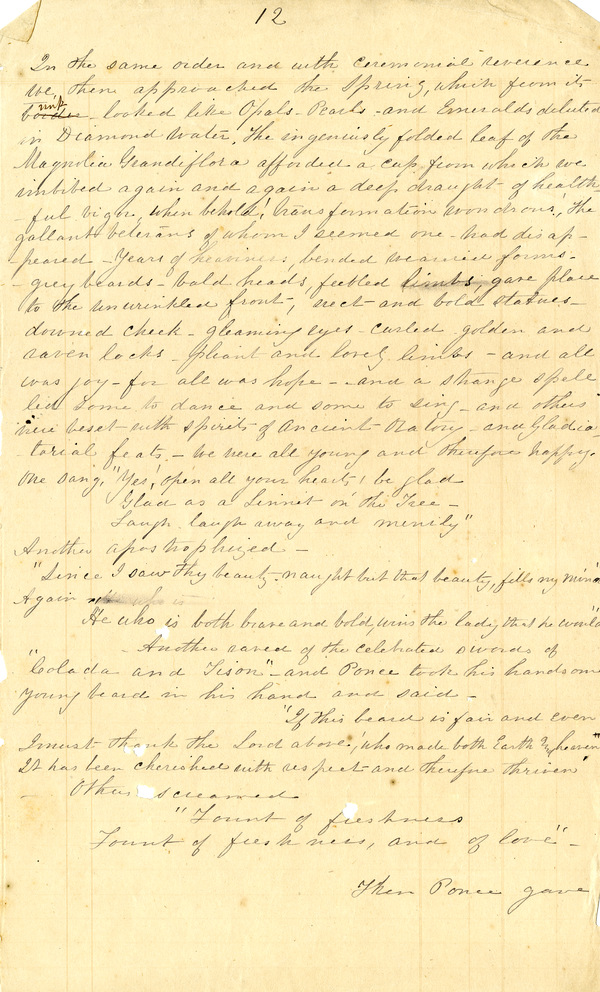 12
In the same order and with ceremonial reverence
we, then approached the Spring, which from its
looked like Opals - Pearls - and Emeralds diluted
in Diamond water, The ingeniously folded leaf of the
Magnolia Grandiflora afforded a cup from which we
imbibed again and again a deep draught of health
- ful vigor, when behold! transformation wondrous! The
gallant veterans of whom I seemed one - had disap-
- peared - Years of heaviness, bended wearied forms -
- grey beards - bald heads, feebled limbs gave place
to the unwrinkled front, erect and bold statues -
downed cheek - gleaming eyes - curled golden and
raven locks - pliant and lovely limbs - and all
was joy - for all was hope - and a strange spell
led some to dance and some to sing - and others
were beset with spirits of Ancient Oratory - and Gladia-
- torial feats - we were all young and therefore happy.
One sang, "Yes, open all your hearts! be glad
Glad as a Linnet on the Tree -
Laugh laugh away and merrily"
Another apostrophized -
"Since I saw thy beauty - naught but that beauty, fills my mind"
Again
He who is both brave and bold, wins the lady that he would
- Another raved of the celebrated swords of
"Colada and Tison" - and Ponce took his handsome
young beard in his hand and said -
"If this beard is fair and even
I must thank the Lord above, who made both Earth & heaven
It has been cherished with respect and therefore thriven"
- Others screamed
"Fount of freshness
Fount of freshness, and of love" -
Then Ponce gave